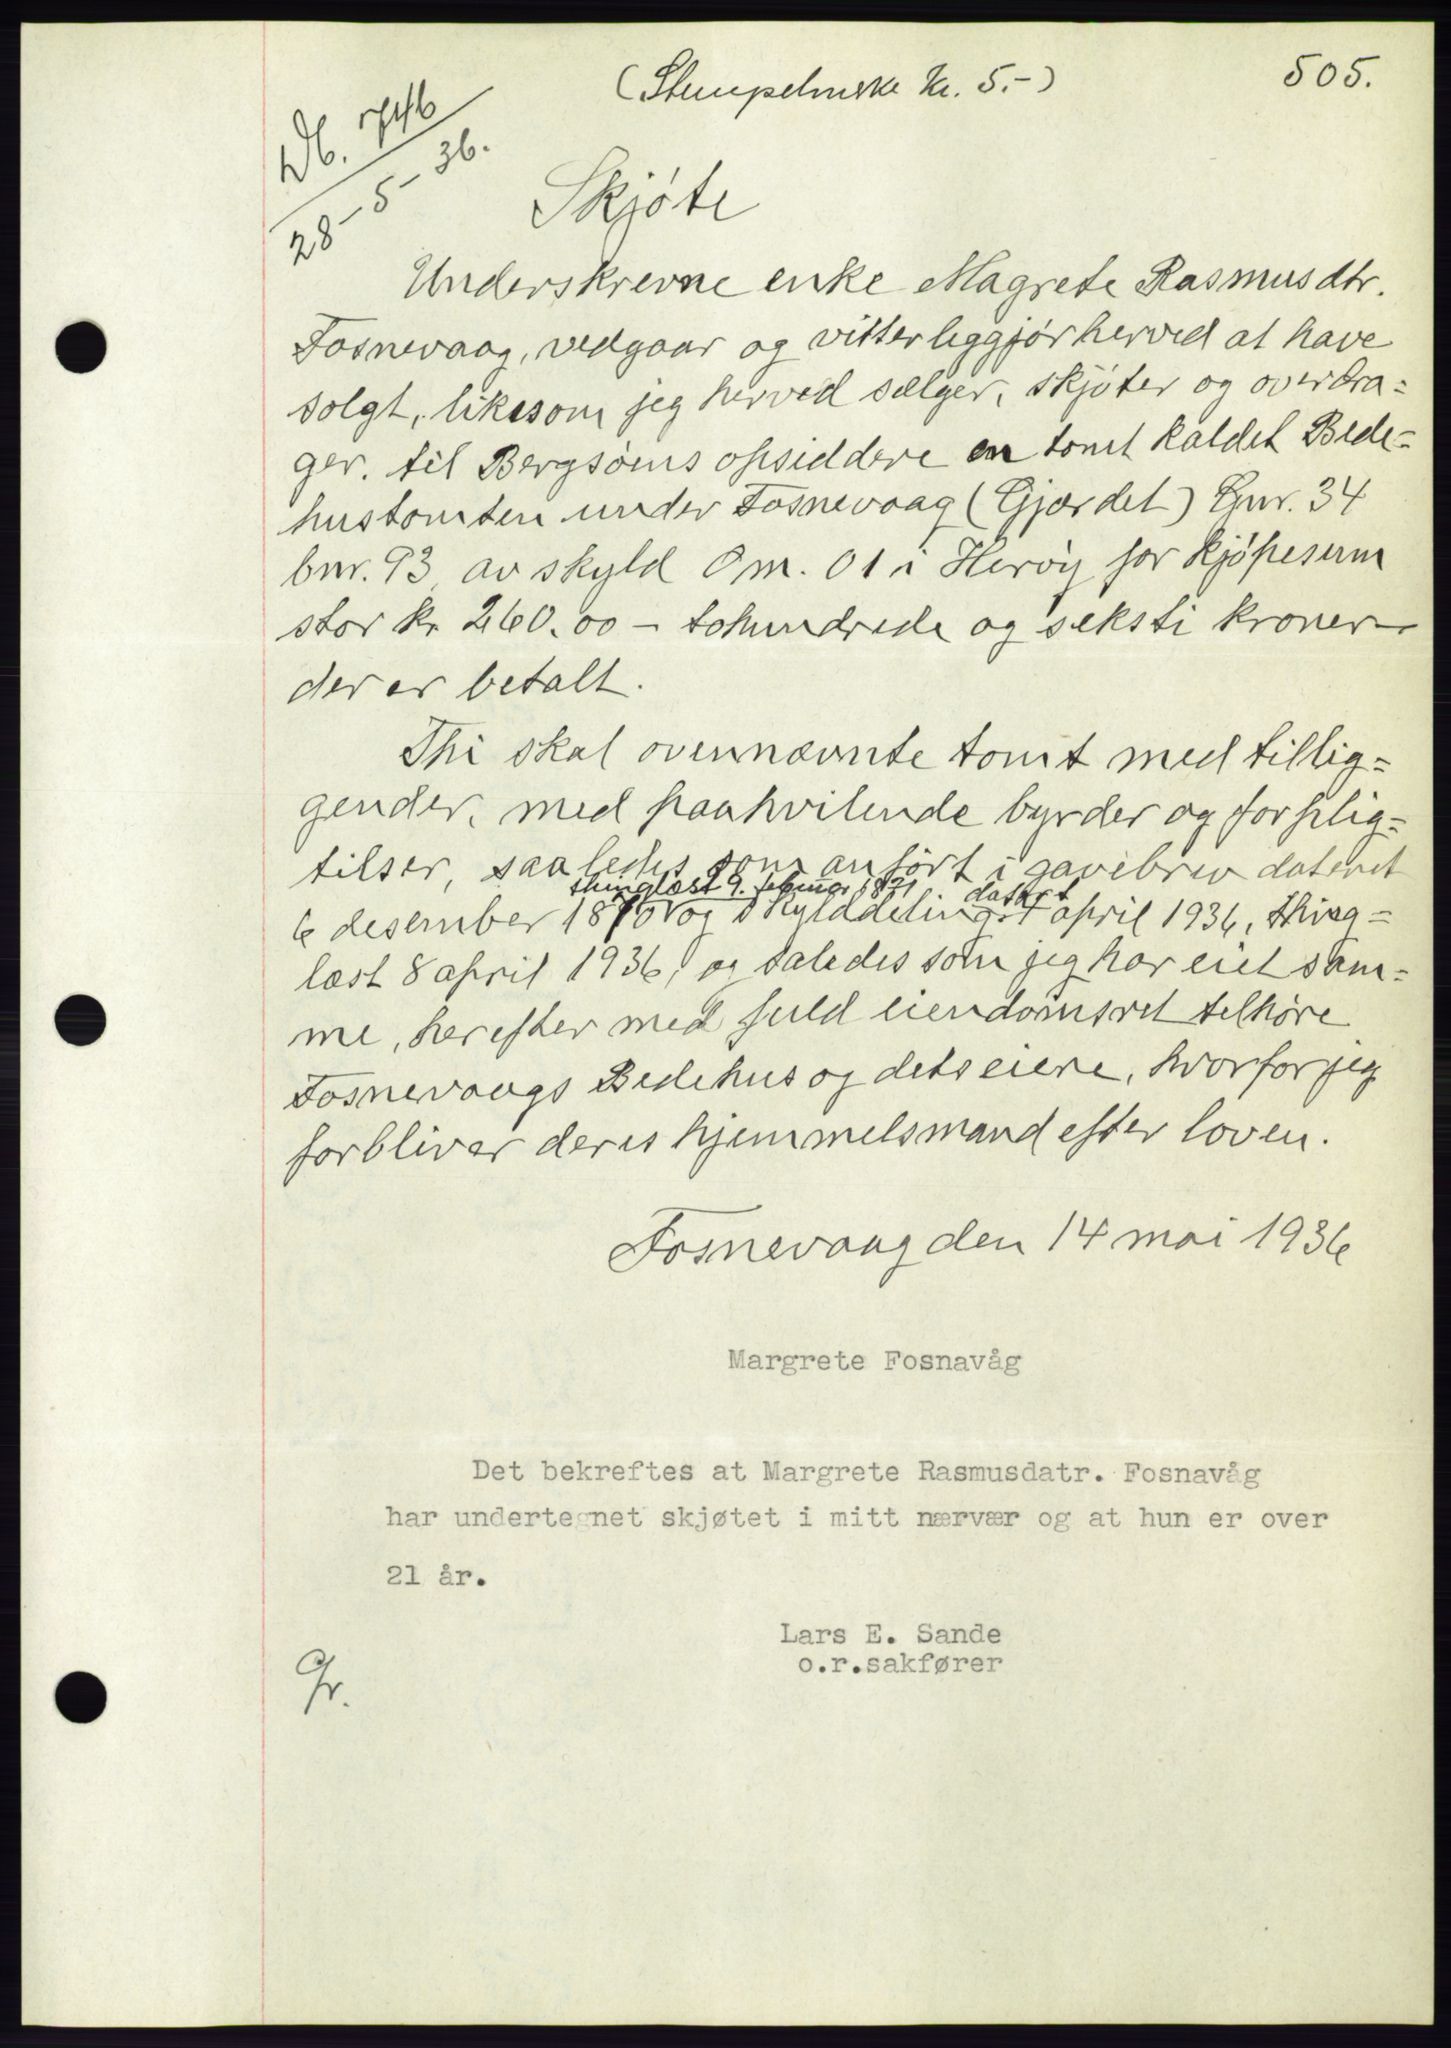 505.
(Stempelmerke kr. 5.-)
Db. 746
28-5-36.
Skjøte
Underskrevne enke Magrete Rasmusdtr.
Fosnevaag, vedgaar og vitterliggjør herved at have
solgt, likesom jeg herved sælger, skjøter og overdra=
ger. til Bergsøens opsiddere en tomt kaldet Bede=
hustomten under Fosnevaag (Gjærdet) Gnr. 34
bnr. 93, av skyld 0 m. 01 i Herøy for kjøpesum
stor kr 260.00 – tohundrede og seksti kroner –
der er betalt.
Thi skal ovennævnte tomt med tillig=
gender, med paahvilende byrder og forplig=
tilser, saaledes som anført i gavebrev dateret
thinglæst 9. februar 1871 datert
6 desember 1870 og skylddeling 4 april 1936, thing=
læst 8 april 1936, og saledes som jeg har eiet sam=
me, herefter med fuld eiendomsret tilhøre
Fosnevaags Bedehus og dets eiere, hvorfor jeg
forbliver deres hjemmelsmand efter loven.
Fosnevaag den 14 mai 1936
Margrete Fosnavåg
Det bekreftes at Margrete Rasmusdatr. Fosnavåg
har undertegnet skjøtet i mitt nærvær og at hun er over
21 år.
Lars E. Sande
o.r.sakfører
Gr.